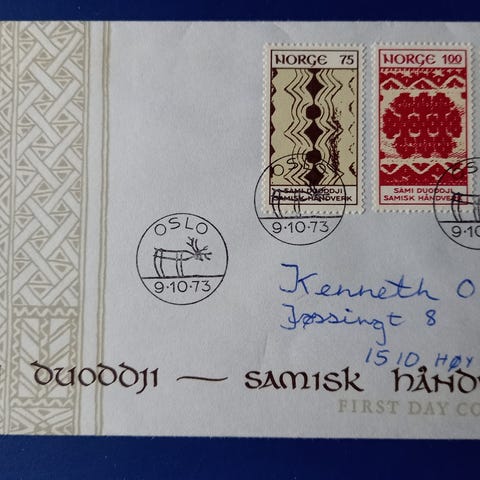 NORGE 75
SAMI DUODDJI
SAMISK HÅNDVERK
NORGE 100
SAMI DUODDJI
SAMISK HÅNDVERK
OSLO
9·10·73
OSLO
9·10·73
OS
9·10·
Kenneth O
8
1510 HØY
DUODDJI — SAMISK HÅND
FIRST DAY CO